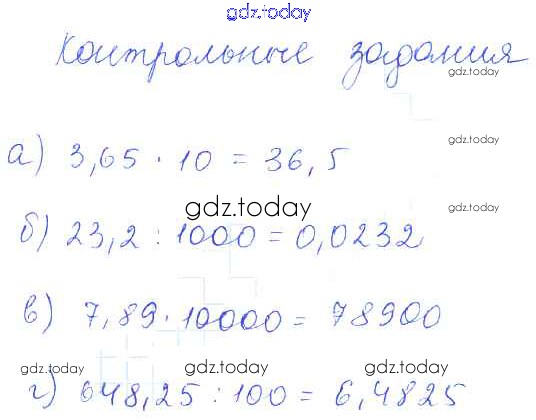 gdz.today
Контрольные задания
gdz.today
а) 3,65 · 10 = 36,5
gdz.today
gdz.today
gdz.today
б) 23,2 : 1000 = 0,0232
в) 7,89 · 10000 = 78900
gdz.today gdz.today gdz.today
г) 648,25 : 100 = 6,4825